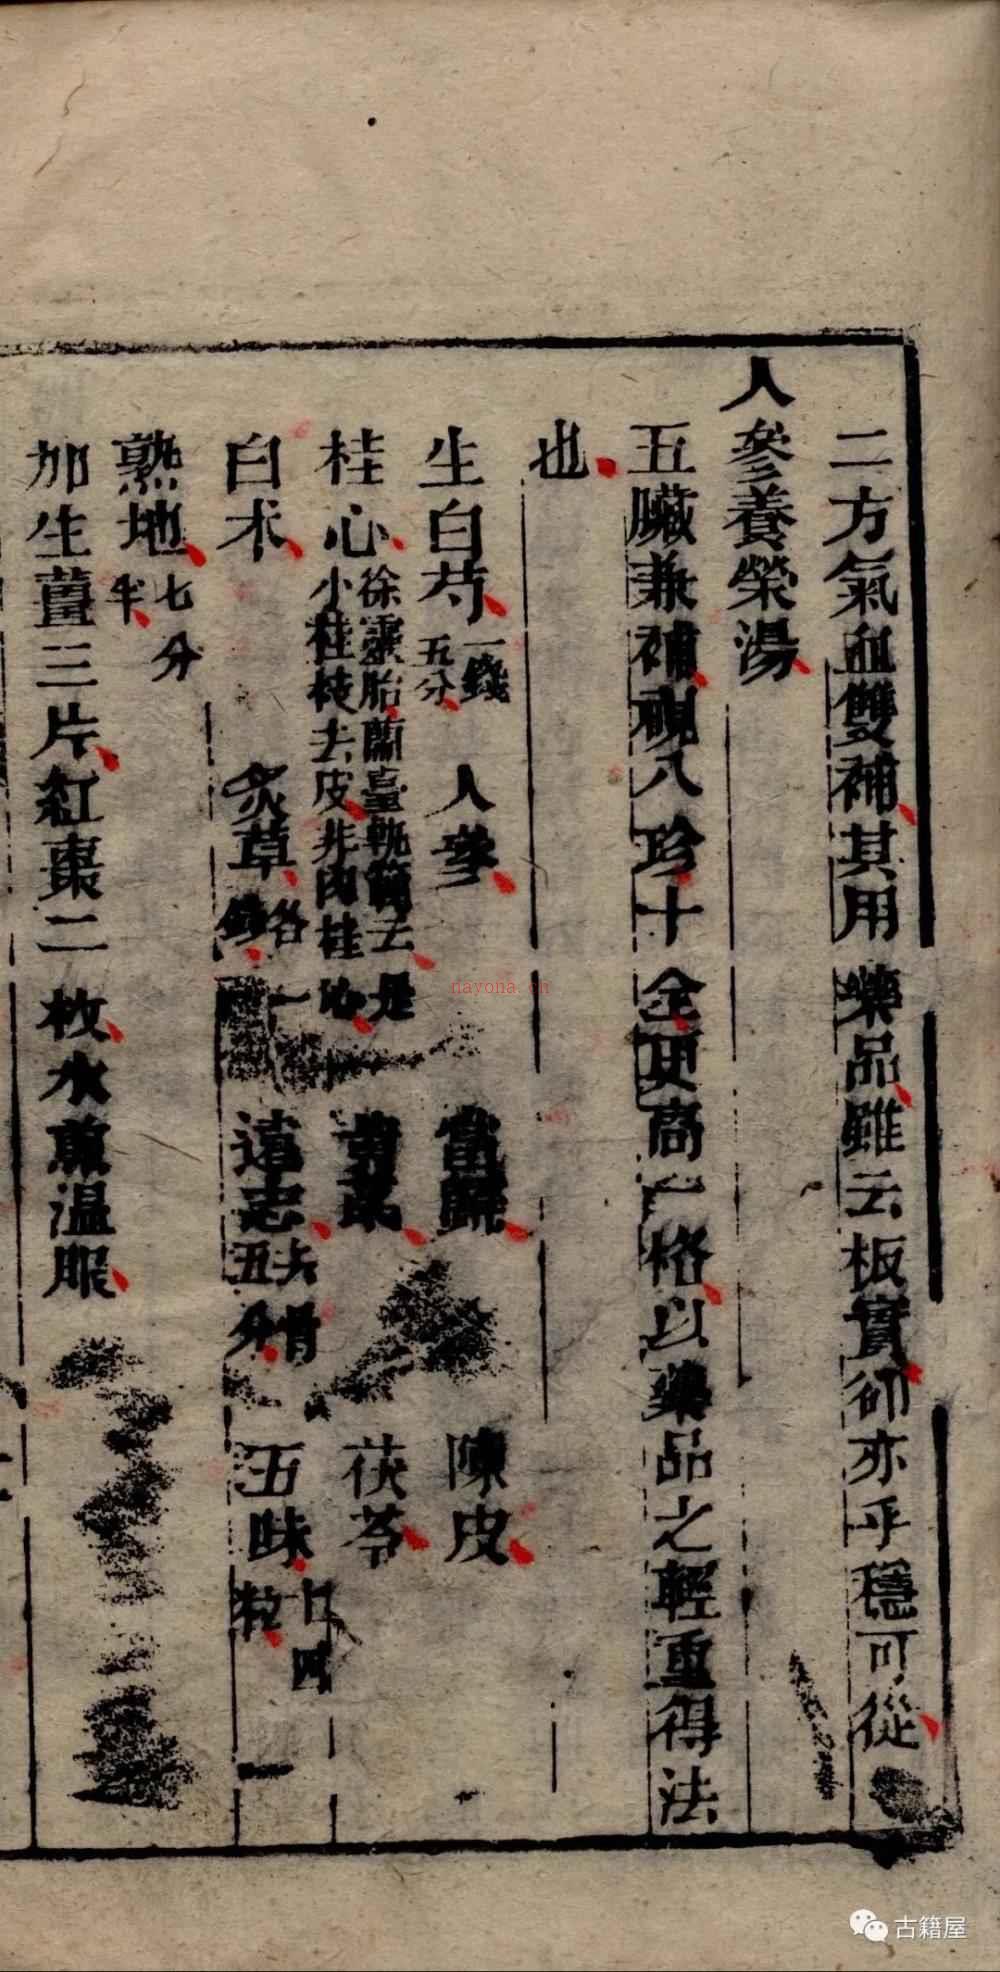 二方氣血雙補其用藥品雖云板實卻亦平穩可從
人參養榮湯
五臟兼補視八珍十全更高一格以藥品之輕重得法
也
生白芍一錢五分 人參 當歸 陳皮
桂心徐靈胎蘭臺軌範云是小桂枝去皮非肉桂也 黃芪 茯苓
白朮 炙草各一錢 遠志去骨五分 五味十四粒
熟地七分半
加生薑三片紅棗二枚水煎溫服
nayona.cn
古籍屋